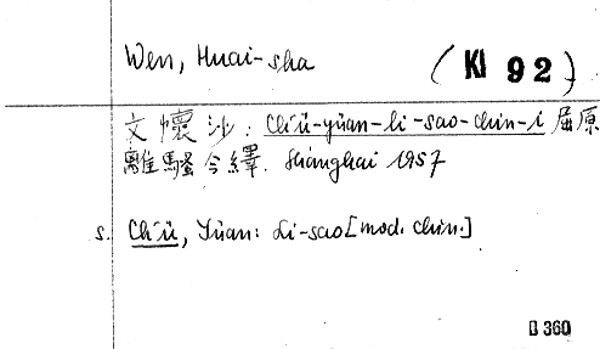 Wen, Huai-sha
(KI 92)
文懷沙: Ch'ü-yüan-li-sao-chin-i 屈原
離騷今繹. Shanghai 1957
s. Ch'ü, Yüan: Li-sao [mod. chin.]
B 360